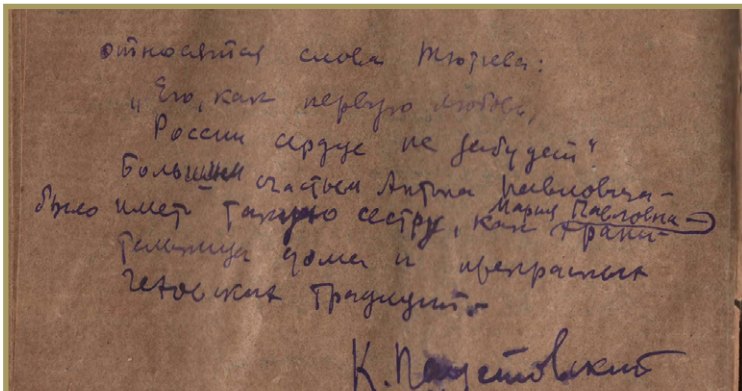 относятся слова Тютчева:
„Его, как первую любовь,
России сердце не забудет“.
Большим счастьем Антона Павловича –
было иметь такую сестру, как Мария Павловна – храни-
тельница дома и прекрасных
чеховских традиций.
К. Паустовский